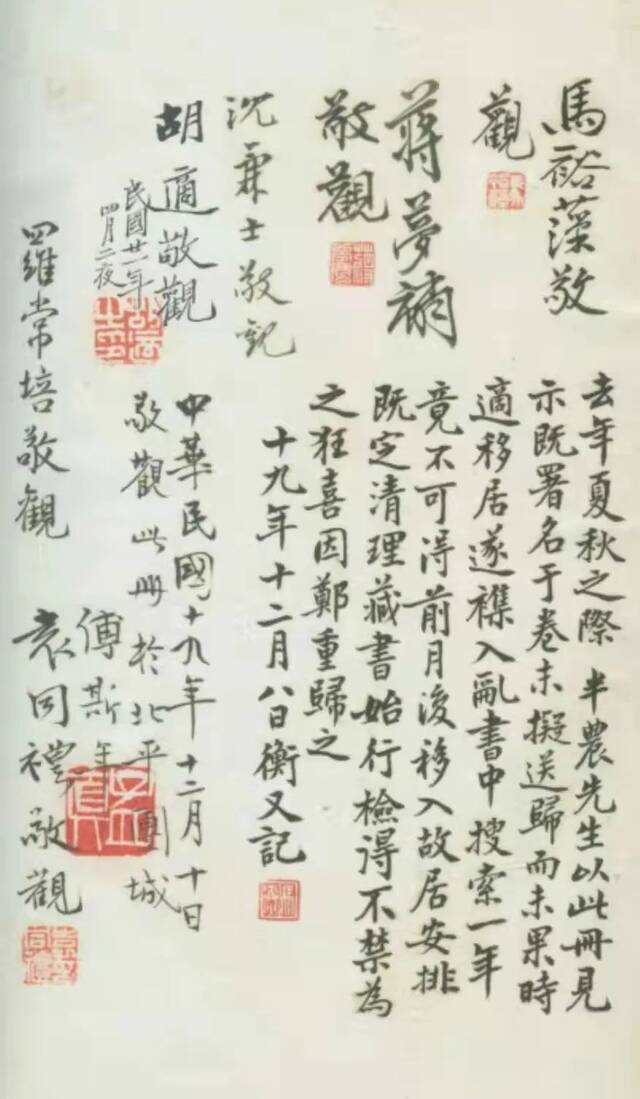 馬裕藻敬
觀
蔣夢麟
敬觀
沈兼士敬觀
胡適敬觀
民國廿一年
四月二夜
去年夏秋之際 半農先生以此冊見
示既署名于卷末擬送歸而未果時
適移居遂襍入亂書中搜索一年
竟不可得前月復移入故居安排
既定清理藏書始行檢得不禁為
之狂喜因鄭重歸之
十九年十二月八日衡又記
中華民國十九年十二月十日
敬觀此冊於北平團城
傅斯年
孟真
羅常培敬觀
袁同禮敬觀